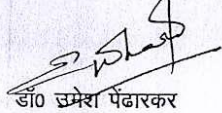 डॉ0 उमेश पेंढारकर